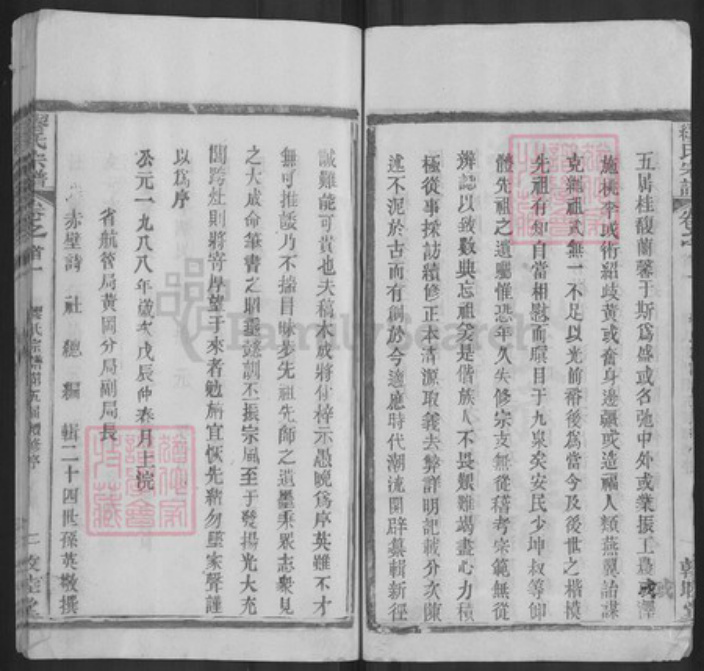 五居桂馥蘭馨于斯爲盛或名弛中外或業振工農或澤
施桃李或術紹歧黃或奮身邊疆或造福人類燕翼詒謀
克繩祖武無一不足以光前裕後爲當今及後世之楷模
先祖有知自當相慰而瞑目于九泉矣安民少坤叔等仰
體先祖之遺囑惟恐年久失修宗支無從稽考宗範無從
辨認以致數典忘祖爰是偕族人不畏艱難竭盡心力積
極從事採訪續修正本清源取義去弊詳明記載分次陳
述不泥於古而有創於今適應時代潮流開辟纂輯新徑
誠難能可貴也夫稿本成將付梓示愚晚爲序英雖不才
無可推諉乃不揣目昧步先祖先師之遺墨秉眾志衆見
之大成命筆書之昭垂謎訓丕振宗風至于發揚光大充
閭跨灶則將寄厚望于來者勉旃宜恢先緒勿墜家聲謹
以爲序
公元一九八八年歲次戊辰仲春月上浣
省航管局黃岡分局副局長
赤壁詩社總編輯二十四世孫英敬撰
氏宗譜
卷之首一
宗譜
五屆
修序
二
FamilySearch